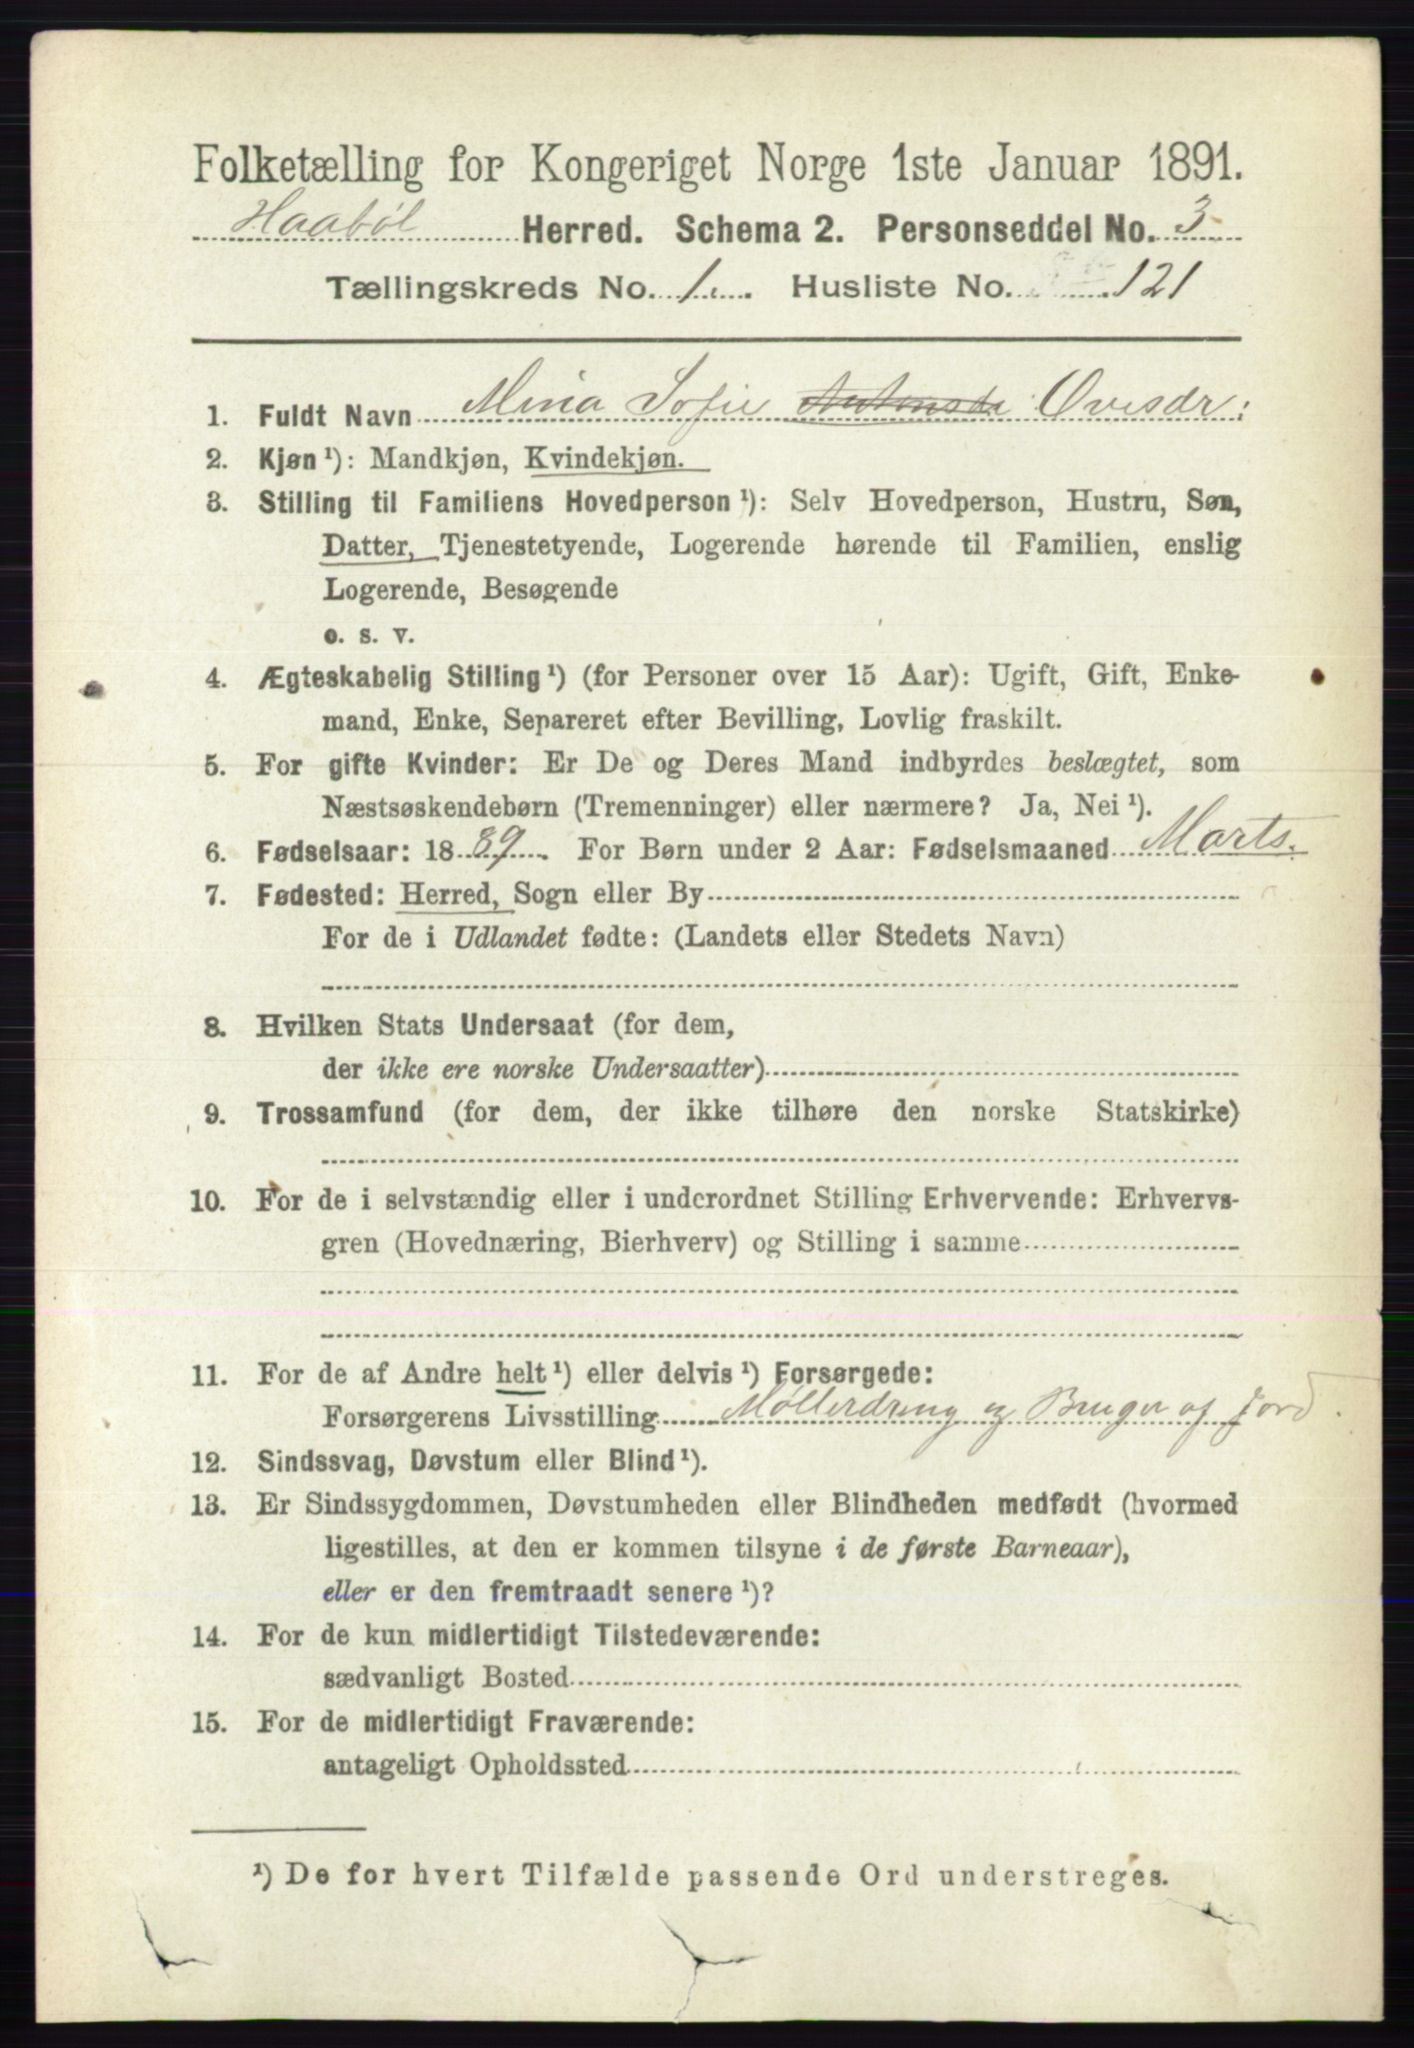 Folketælling for Kongeriget Norge 1ste Januar 1891.
Haabøl Herred. Schema 2. Personseddel No. 3
Tællingskreds No. 1. Husliste No. 121
1. Fuldt Navn Mina Sofie Ovesdr:
2. Kjøn ¹): Mandkjøn, Kvindekjøn.
3. Stilling til Familiens Hovedperson ¹): Selv Hovedperson, Hustru, Søn,
Datter, Tjenestetyende, Logerende hørende til Familien, enslig
Logerende, Besøgende
o. s. v.
4. Ægteskabelig Stilling ¹) (for Personer over 15 Aar): Ugift, Gift, Enke-
mand, Enke, Separeret efter Bevilling, Lovlig fraskilt.
5. For gifte Kvinder: Er De og Deres Mand indbyrdes beslægtet, som
Næstsøskendebørn (Tremenninger) eller nærmere? Ja, Nei ¹).
6. Fødselsaar: 1889. For Børn under 2 Aar: Fødselsmaaned Marts.
7. Fødested: Herred, Sogn eller By
For de i Udlandet fødte: (Landets eller Stedets Navn)
8. Hvilken Stats Undersaat (for dem,
der ikke ere norske Undersaatter)
9. Trossamfund (for dem, der ikke tilhøre den norske Statskirke)
10. For de i selvstændig eller i underordnet Stilling Erhvervende: Erhvervs-
gren (Hovednæring, Bierhverv) og Stilling i samme
11. For de af Andre helt ¹) eller delvis ¹) Forsørgede:
Forsørgerens Livsstilling Møllerdreng og Bruger af Jord.
12. Sindssvag, Døvstum eller Blind ¹).
13. Er Sindssygdommen, Døvstumheden eller Blindheden medfødt (hvormed
ligestilles, at den er kommen tilsyne i de første Barneaar),
eller er den fremtraadt senere ¹)?
14. For de kun midlertidigt Tilstedeværende:
sædvanligt Bosted
15. For de midlertidigt Fraværende:
antageligt Opholdssted
¹) De for hvert Tilfælde passende Ord understreges.